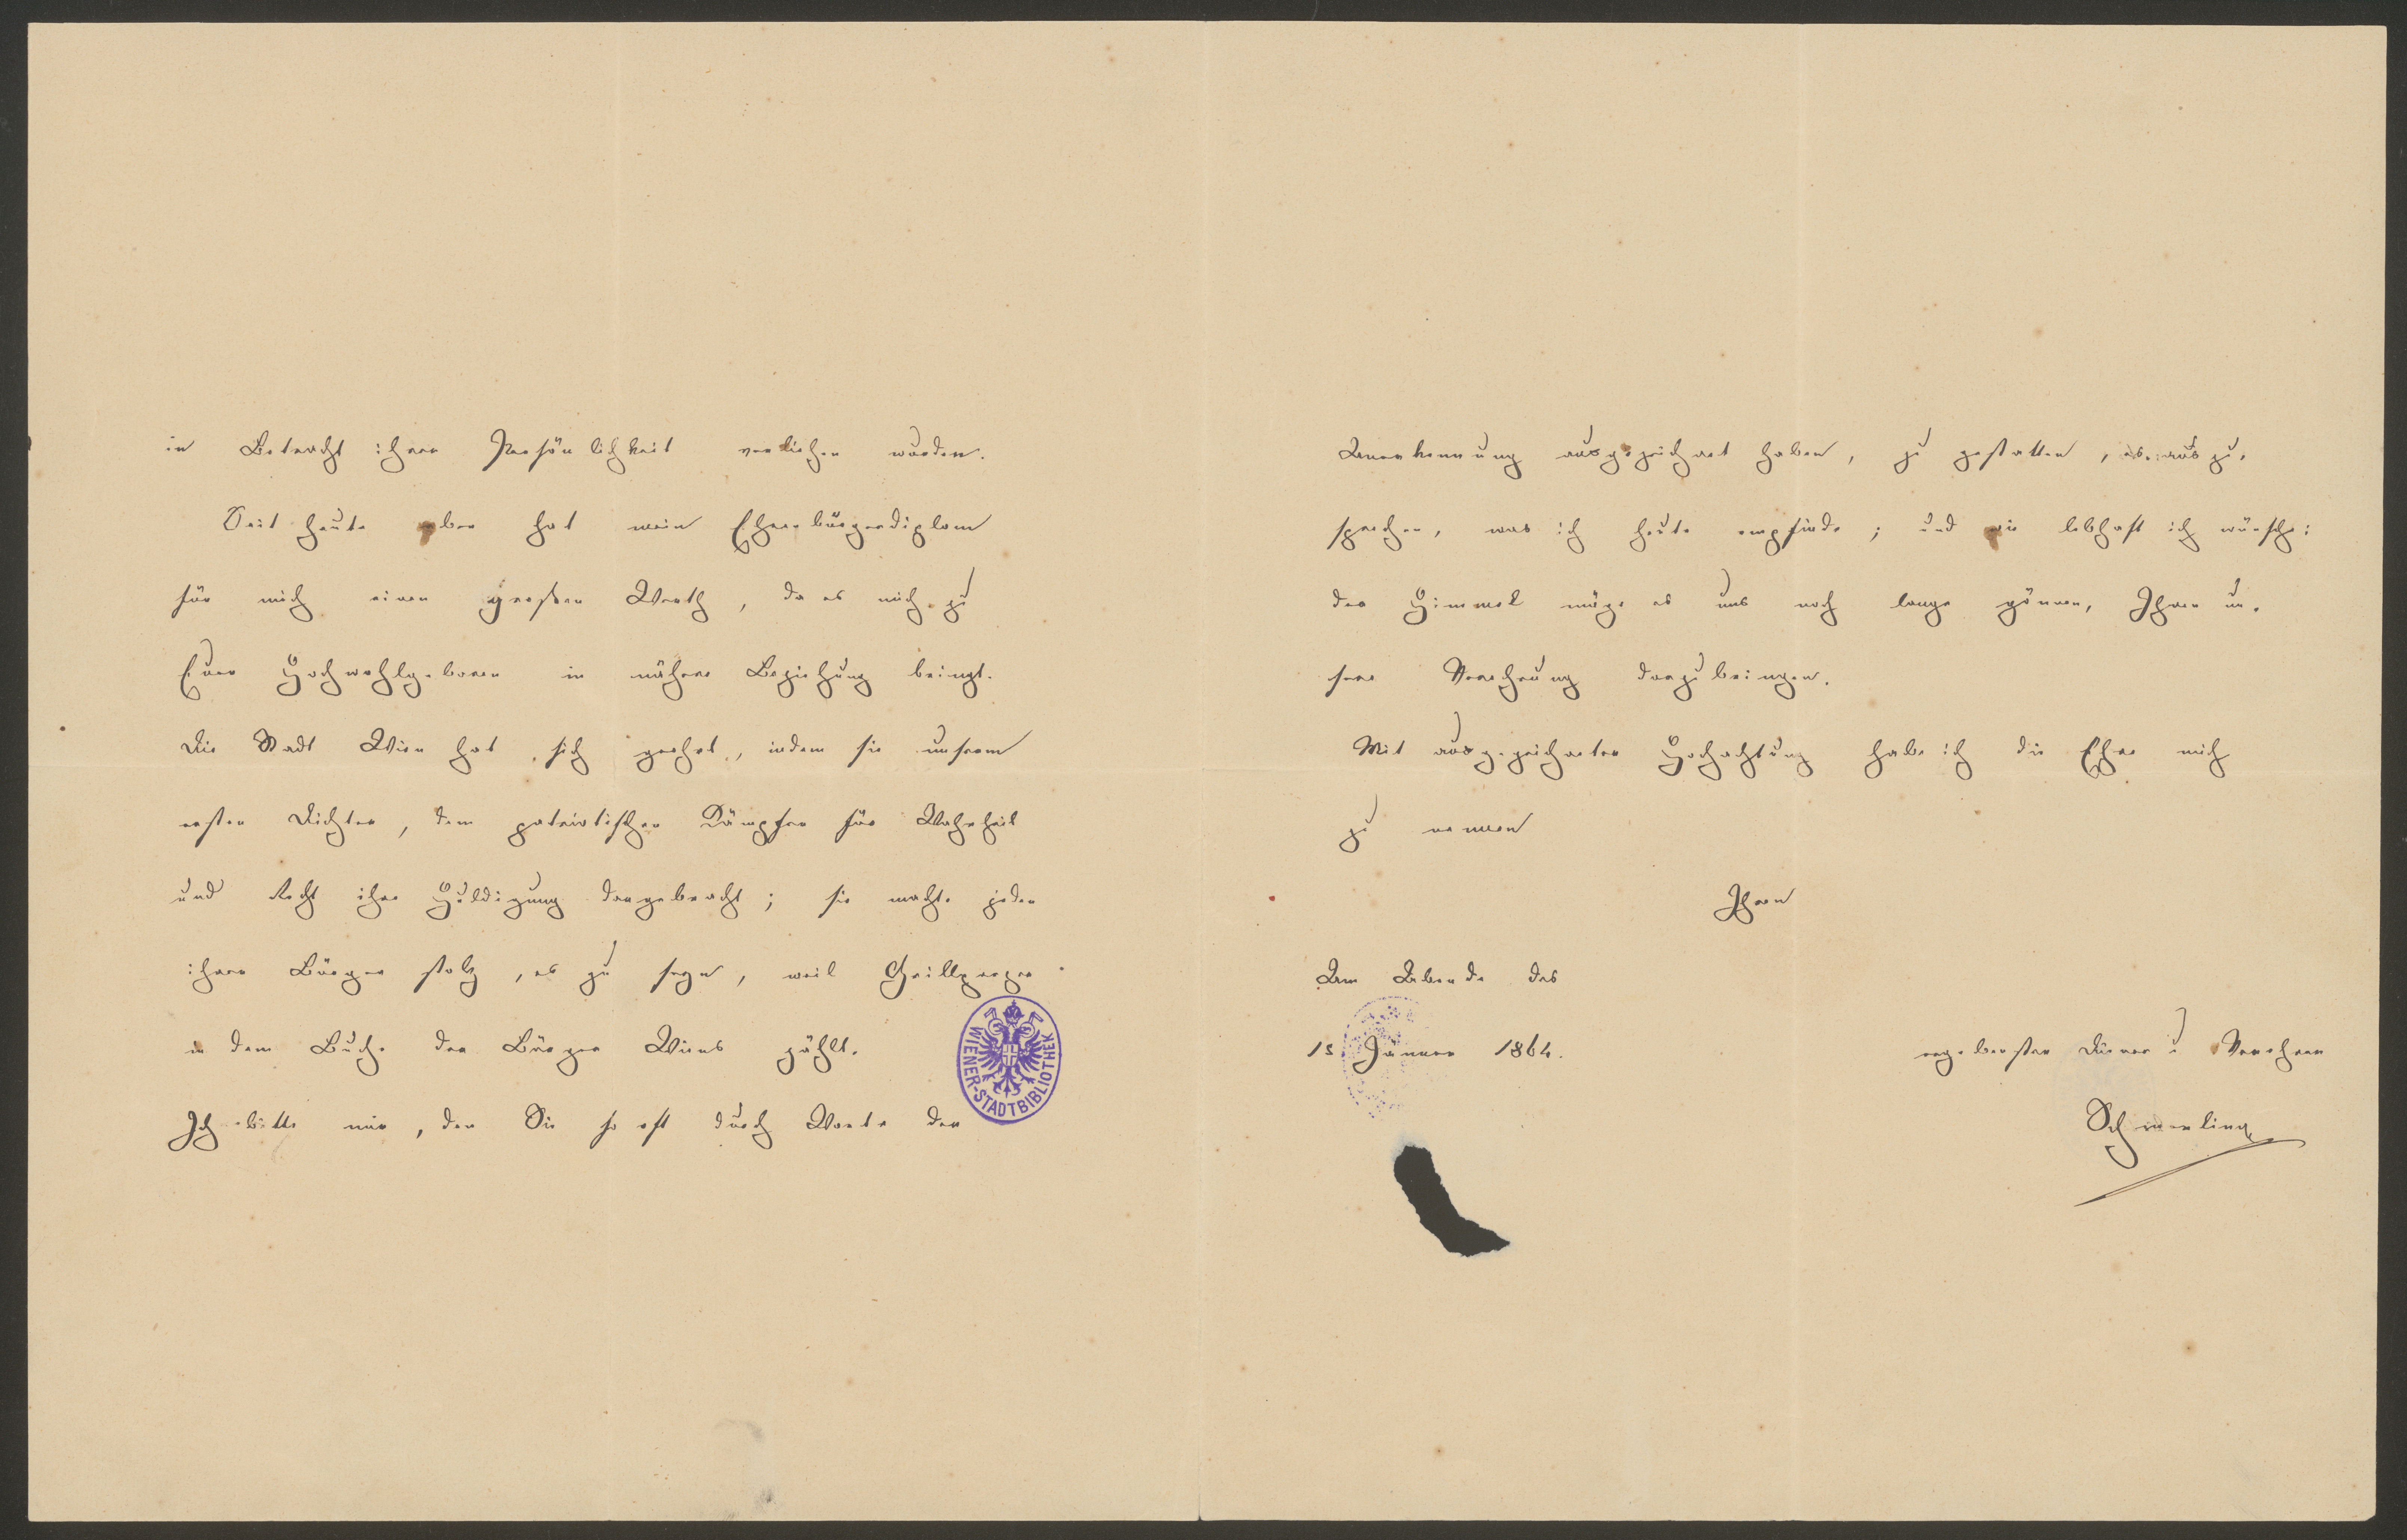 in Betracht ihrer Persönlichkeit verliehen wurden.
Seit heute aber hat mein Ehrenbürgerdiplom
für mich einen großen Werth, da es mich zu
Euer Hochwohlgeboren in nähere Beziehung bringt.
Die Stadt Wien hat sich geehrt, indem sie unserem
ersten Dichter, dem patriotischen Kämpfer für Wahrheit
und Recht ihre Huldigung dargebracht; sie macht jeden
ihrer Bürger stolz, es zu seyn, weil Grillparzer
in dem Buche der Bürger Wiens zählt.
Ich bitte mir, den Sie so oft durch Worte der
WIENER-STADTBIBLIOTHEK
Anerkennung ausgezeichnet haben, zu gestatten, es auszu-
sprechen, was ich heute empfinde; und wie lebhaft ich wünsche:
der Himmel möge es uns noch lange gönnen, Ihnen un-
sere Verehrung darzubringen.
Mit ausgezeichneter Hochachtung habe ich die Ehre mich
zu nennen
Ihren
Am Abende des
15 Jänner 1864.
ergebensten Diener u Verehrer
Schmerling